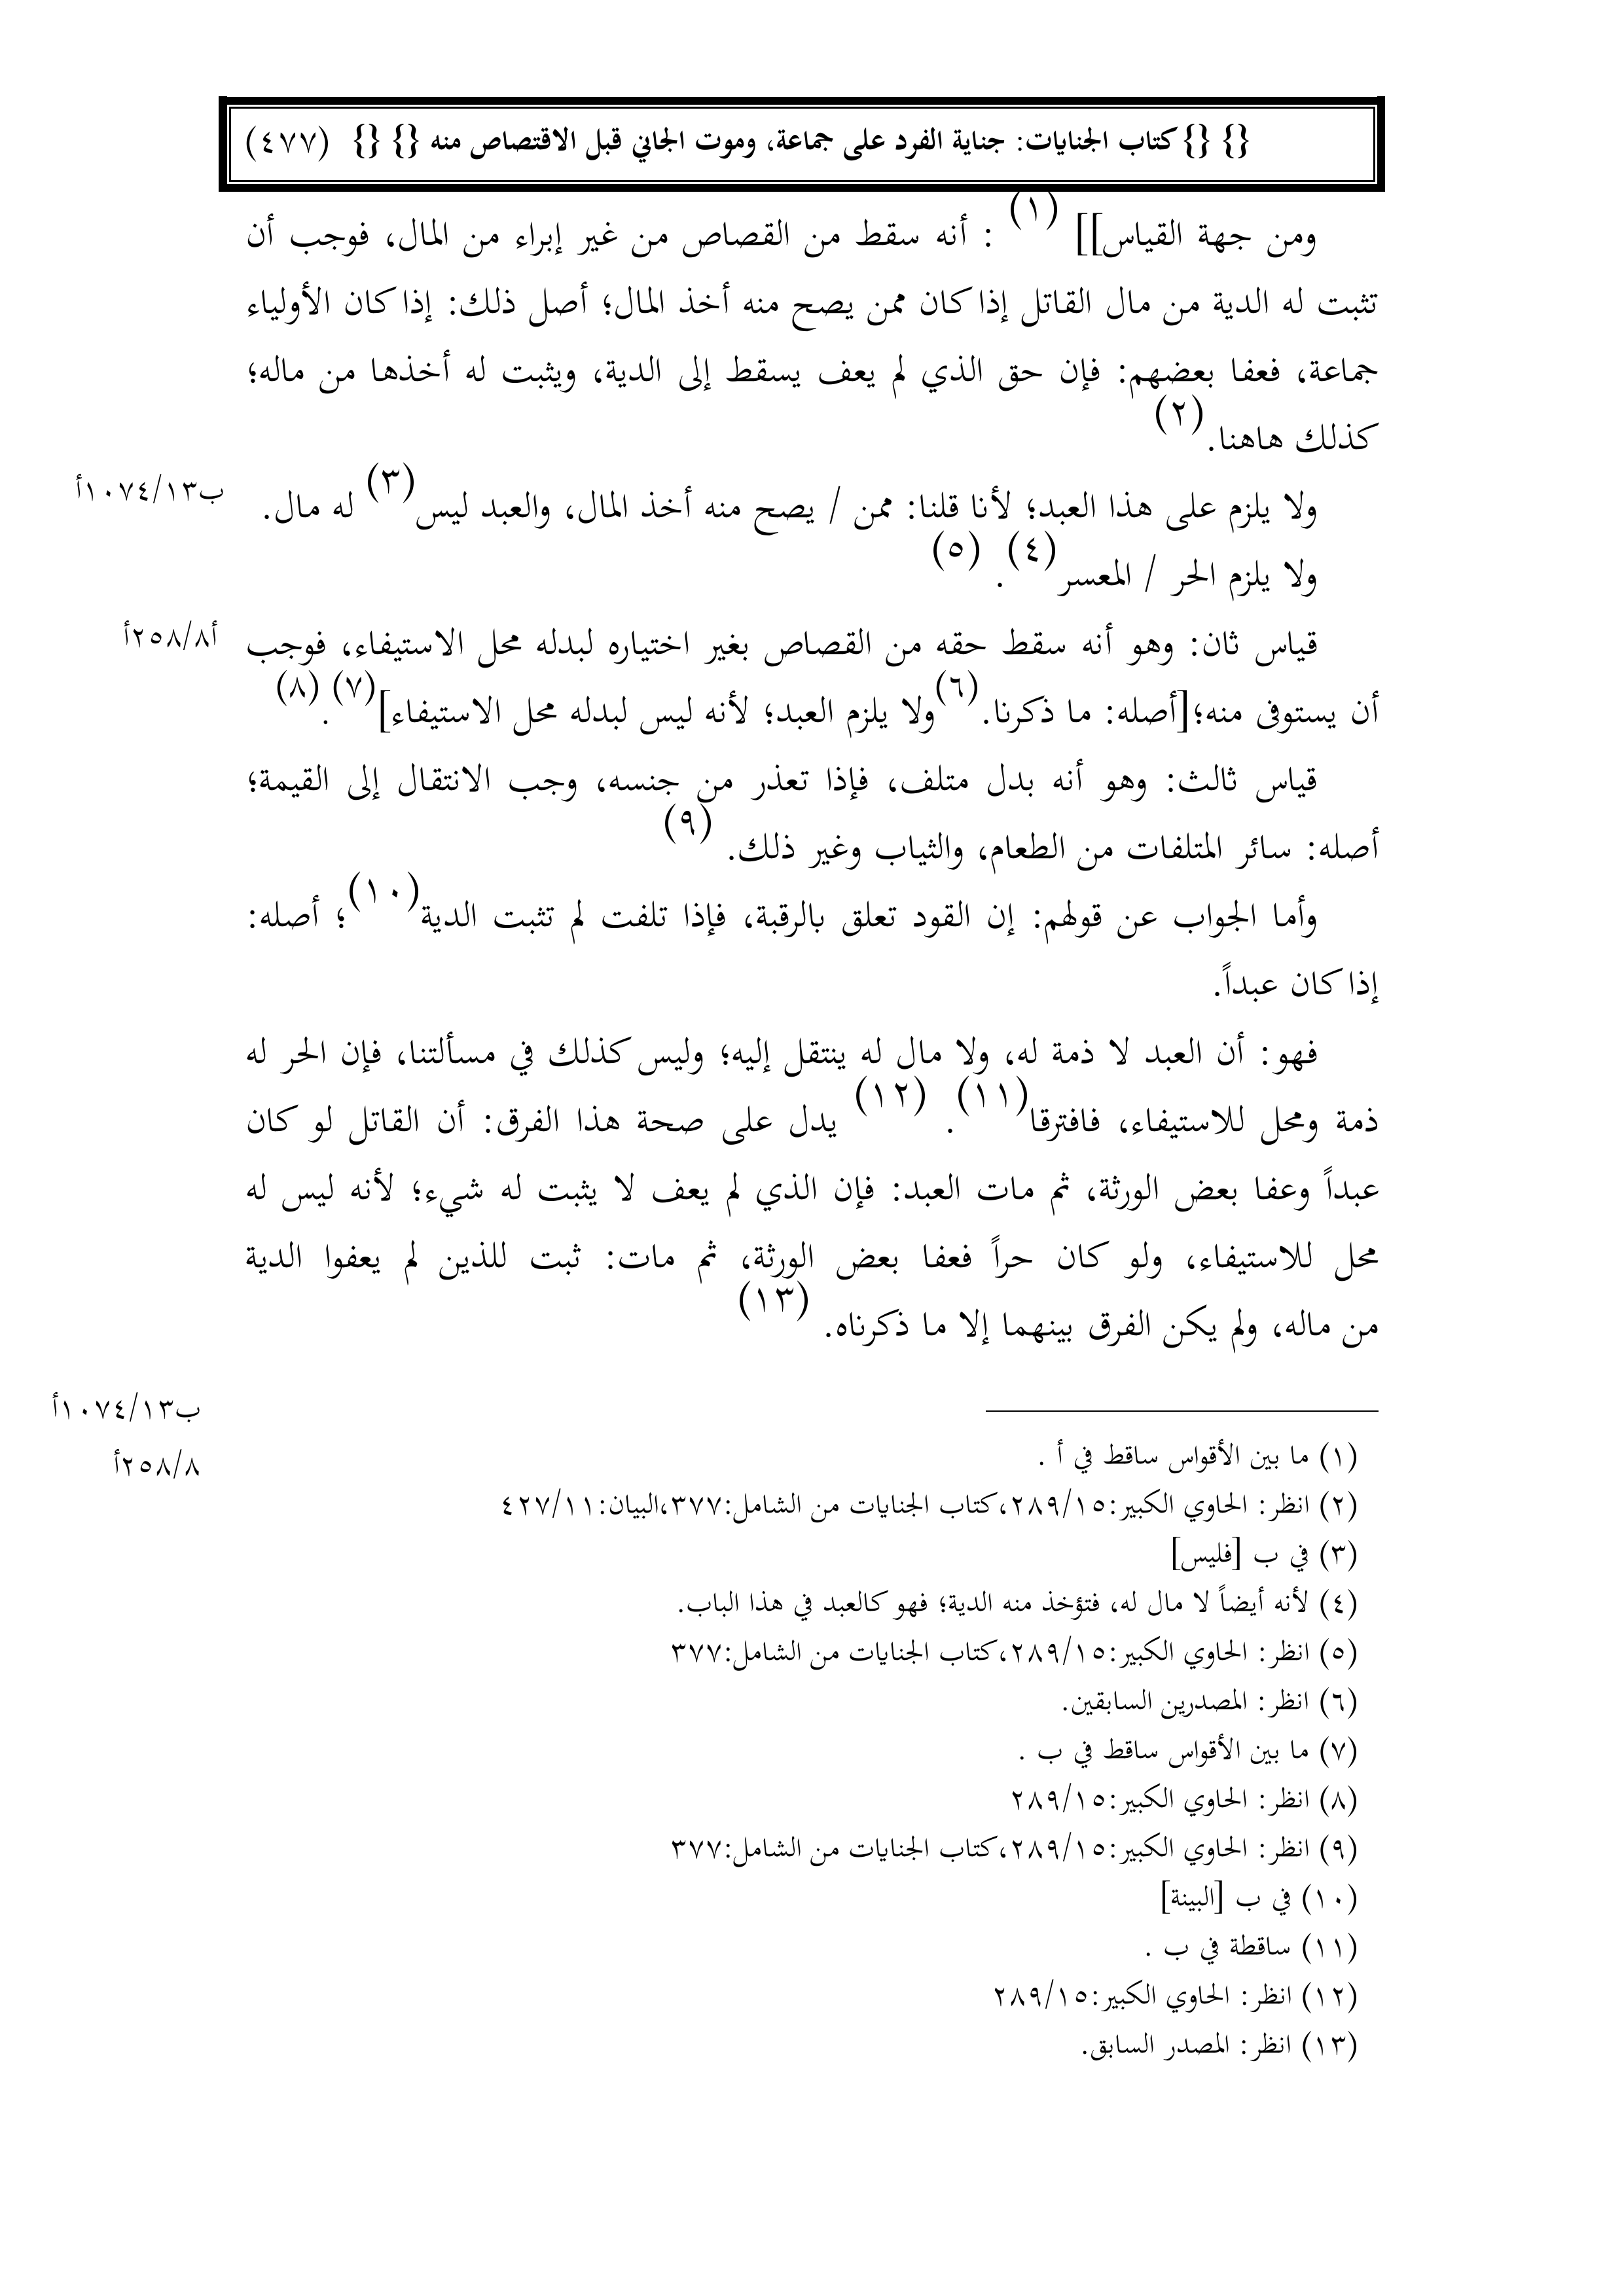 {} {} كتاب الجنايات: جناية الفرد على جماعة، وموت الجاني قبل الاقتصاص منه {} {} (٤٧٧)
ومن جهة القياس]] (١) : أنه سقط من القصاص من غير إبراء من المال، فوجب أن
تثبت له الدية من مال القاتل إذا كان ممن يصح منه أخذ المال؛ أصل ذلك: إذا كان الأولياء
جماعة، فعفا بعضهم: فإن حق الذي لم يعف يسقط إلى الدية، ويثبت له أخذها من ماله؛
كذلك هاهنا.(٢)
ولا يلزم على هذا العبد؛ لأنا قلنا: ممن / يصح منه أخذ المال، والعبد ليس(٣) له مال.
ب١٠٧٤/١٣أ
ولا يلزم الحر / المعسر(٤). (٥)
قياس ثان: وهو أنه سقط حقه من القصاص بغير اختياره لبدله محل الاستيفاء، فوجب
أ٢٥٨/٨أ
أن يستوفى منه؛[أصله: ما ذكرنا.(٦)ولا يلزم العبد؛ لأنه ليس لبدله محل الاستيفاء](٧).(٨)
قياس ثالث: وهو أنه بدل متلف، فإذا تعذر من جنسه، وجب الانتقال إلى القيمة؛
أصله: سائر المتلفات من الطعام، والثياب وغير ذلك. (٩)
وأما الجواب عن قولهم: إن القود تعلق بالرقبة، فإذا تلفت لم تثبت الدية(١٠)؛ أصله:
إذا كان عبداً.
فهو: أن العبد لا ذمة له، ولا مال له ينتقل إليه؛ وليس كذلك في مسألتنا، فإن الحر له
ذمة ومحل للاستيفاء، فافترقا(١١). (١٢) يدل على صحة هذا الفرق: أن القاتل لو كان
عبداً وعفا بعض الورثة، ثم مات العبد: فإن الذي لم يعف لا يثبت له شيء؛ لأنه ليس له
محل للاستيفاء، ولو كان حراً فعفا بعض الورثة، ثم مات: ثبت للذين لم يعفوا الدية
من ماله، ولم يكن الفرق بينهما إلا ما ذكرناه. (١٣)
ب١٠٧٤/١٣أ
٢٥٨/٨أ
(١) ما بين الأقواس ساقط في أ .
(٢) انظر: الحاوي الكبير:٢٨٩/١٥،كتاب الجنايات من الشامل:٣٧٧،البيان:٤٢٧/١١
(٣) في ب [فليس]
(٤) لأنه أيضاً لا مال له، فتؤخذ منه الدية؛ فهو كالعبد في هذا الباب.
(٥) انظر: الحاوي الكبير:٢٨٩/١٥،كتاب الجنايات من الشامل:٣٧٧
(٦) انظر: المصدرين السابقين.
(٧) ما بين الأقواس ساقط في ب .
(٨) انظر: الحاوي الكبير:٢٨٩/١٥
(٩) انظر: الحاوي الكبير:٢٨٩/١٥،كتاب الجنايات من الشامل:٣٧٧
(١٠) في ب [البينة]
(١١) ساقطة في ب .
(١٢) انظر: الحاوي الكبير:٢٨٩/١٥
(١٣) انظر: المصدر السابق.